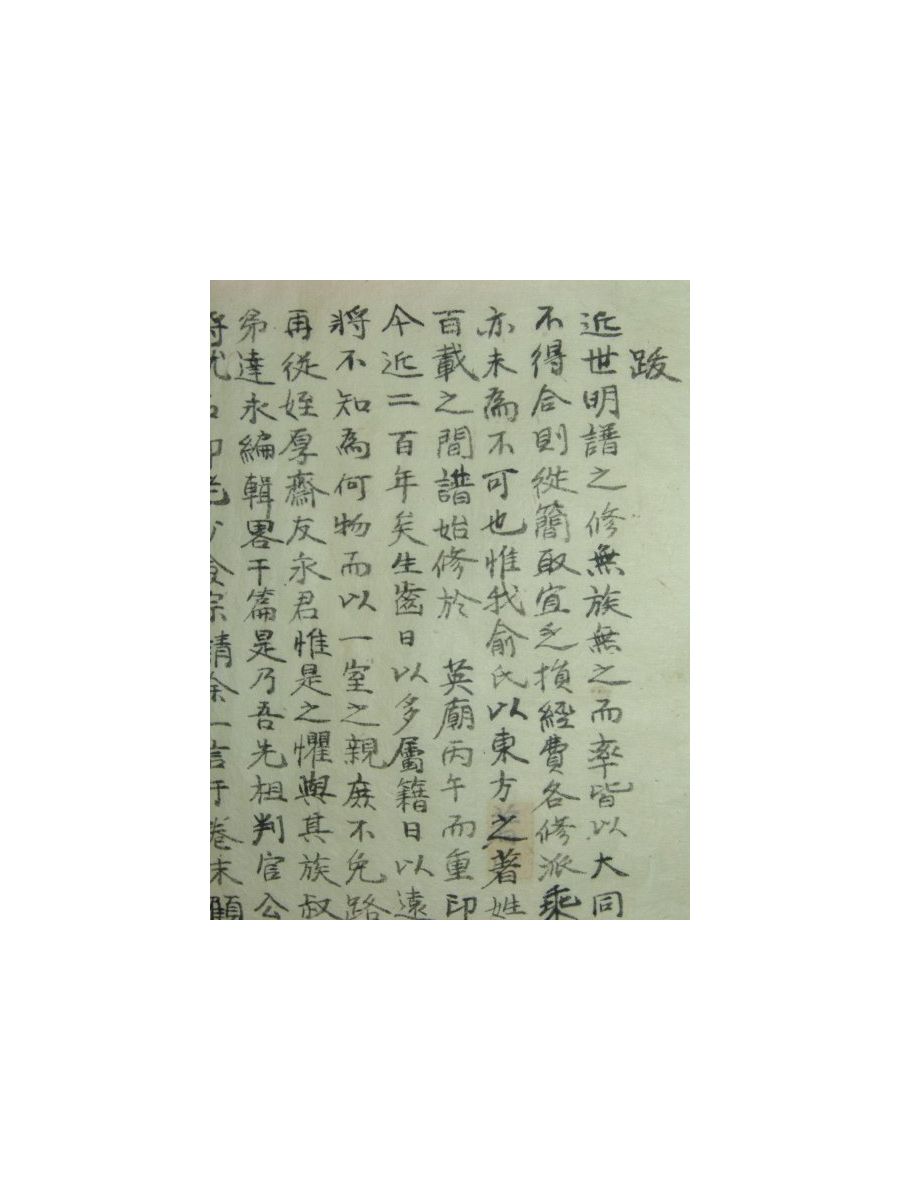 跋
近世明譜之修無族無之而率皆以大同
不得合則從簡取宜之損經費各修派乘
亦未為不可也惟我俞氏以東方之著姓
百載之間譜始修於 英廟丙午而重印
今近二百年矣生齒日以多屬籍日以遠
將不知為何物而以一室之親庶不免路
再從姪厚齋友永君惟是之懼與其族叔
弟達永編輯畧干篇是乃吾先祖判官公
請余一言于卷末願